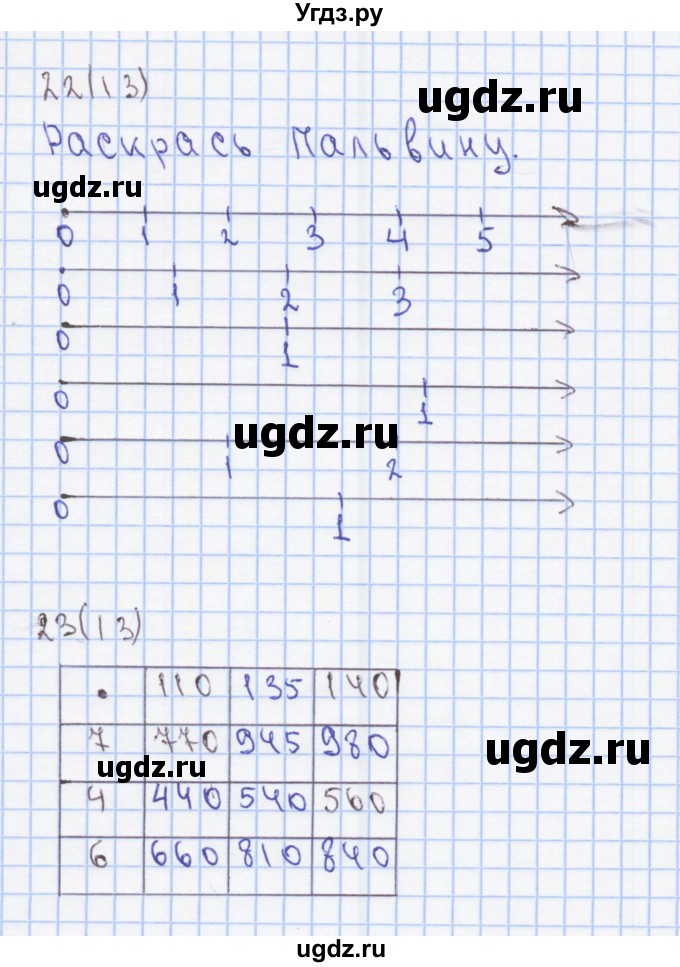 Угдз.ру
22(13)
ugdz.ru
Раскрась Мальвину.
ugdz.ru
0 1 2 3 4 5
0 1 2 3
0 1
0 1
ugdz.ru
0 1 2
0 1
23(13)
· 110 135 140
7 770 945 980
ugdz.ru
ugdz.ru
4 440 540 560
6 660 810 840
ugdz.ru